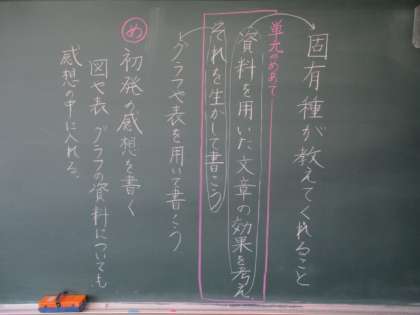 固有種が教えてくれること
単元のめあて
資料を用いた文章の効果を考え
それを生かして書こう
グラフや表を用いて書こう
め 初発の感想を書く
図や表、グラフの資料についても
感想の中に入れる。